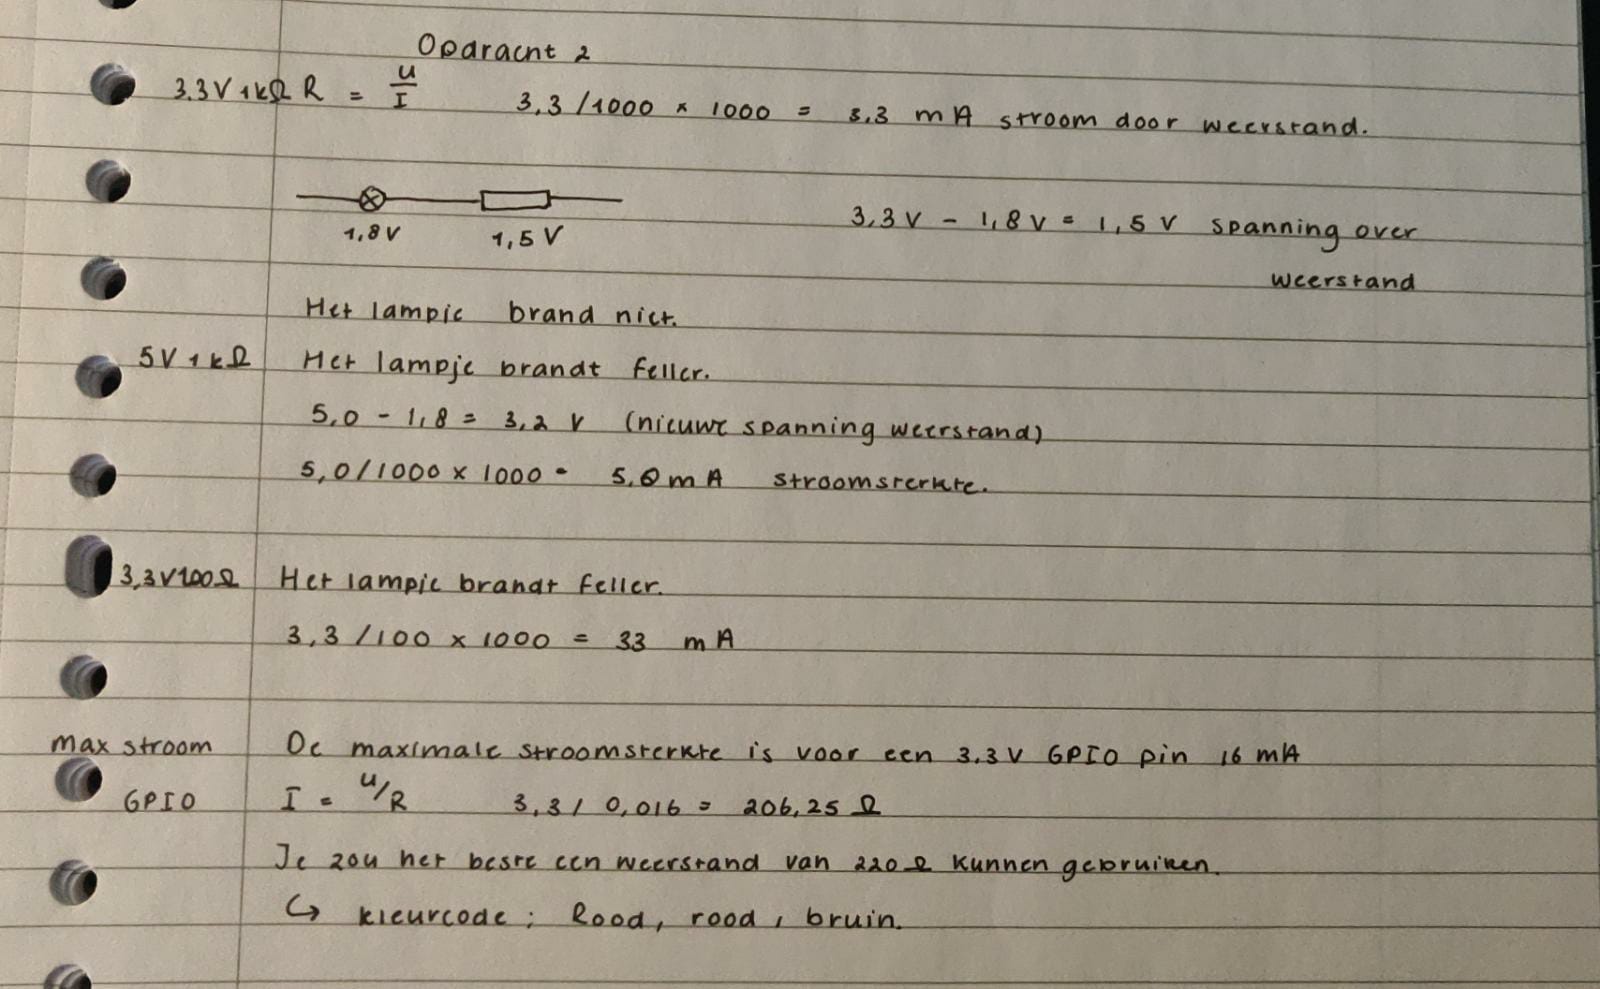 Opdracht 2
3.3V 1kΩ R = U/I 3,3 / 1000 x 1000 = 3,3 mA stroom door weerstand.
1,8V 1,5 V 3,3 V - 1,8 V = 1,5 V spanning over
weerstand
Het lampje brand niet.
5V 1kΩ Het lampje brandt feller.
5,0 - 1,8 = 3,2 V (nieuwe spanning weerstand)
5,0/1000 x 1000 = 5,0 mA stroomsterkte.
3,3V 100Ω Het lampje brandt feller.
3,3 /100 x 1000 = 33 mA
max stroom De maximale stroomsterkte is voor een 3.3 V GPIO pin 16 mA
GPIO I = U/R 3,3 / 0,016 = 206,25 Ω
Je zou het beste een weerstand van 220 Ω kunnen gebruiken.
↳ kleurcode : Rood, rood, bruin.